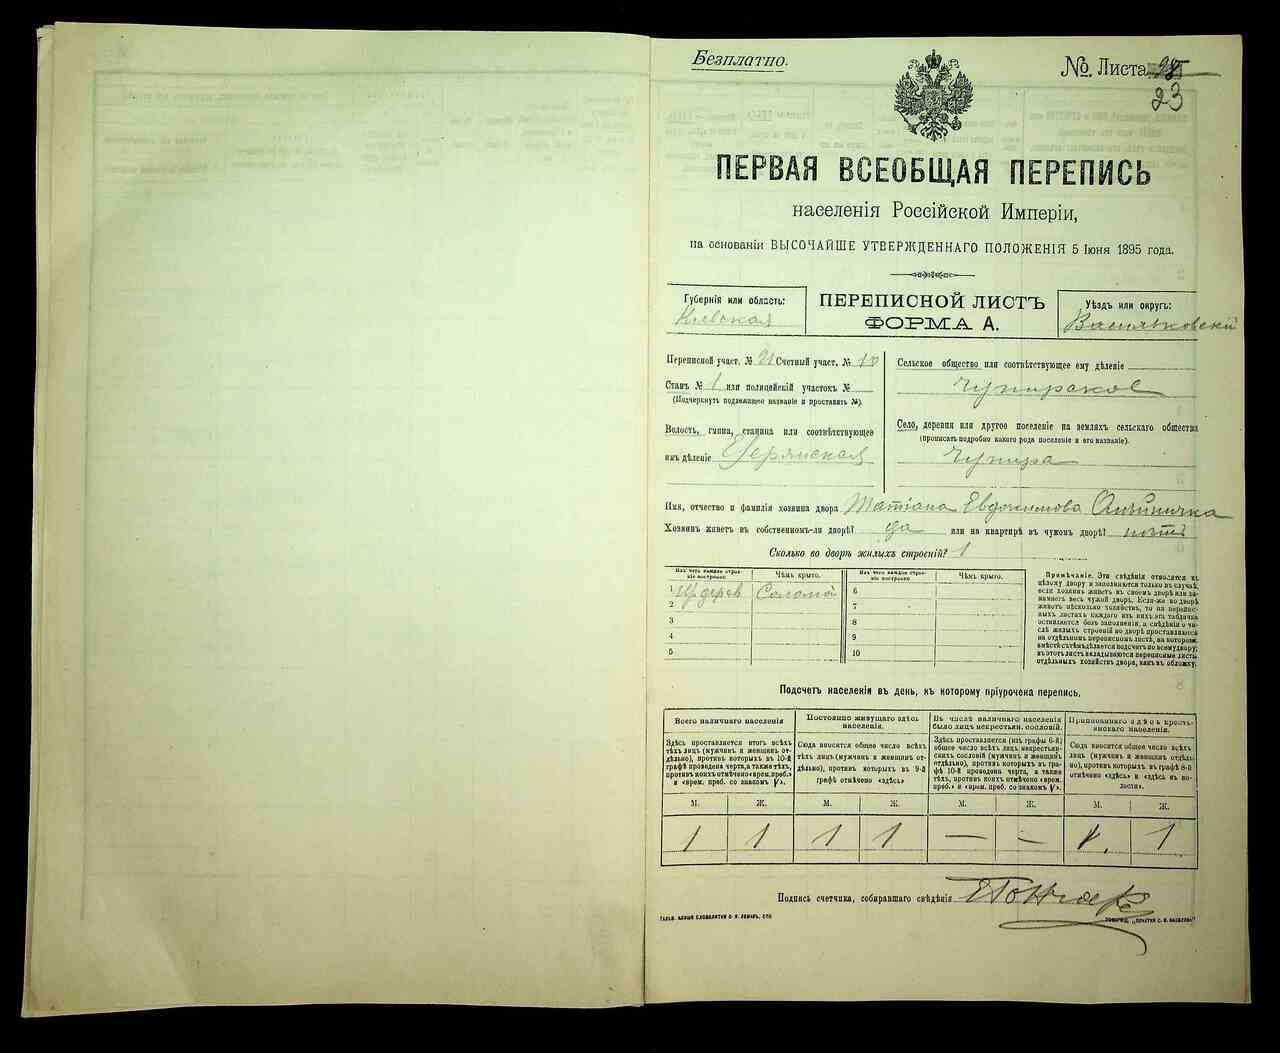 Безплатно.
№. Листа 23
ПЕРВАЯ ВСЕОБЩАЯ ПЕРЕПИСЬ
населенія Россійской Имперіи,
на основаніи ВЫСОЧАЙШЕ УТВЕРЖДЕННАГО ПОЛОЖЕНІЯ 5 Іюня 1895 года.
Губернія или область:
Кіевская
ПЕРЕПИСНОЙ ЛИСТЪ
ФОРМА А.
Уѣздъ или округъ:
Васильковскій
Переписной участ. № 21 Счетный участ. № 10
Станъ № 1 или полицейскій участокъ №
(Подчеркнуть подлежащее названіе и проставить №).
Волость, гмина, станица или соотвѣтствующее
имъ дѣленіе
Сельское общество или соотвѣтствующее ему дѣленіе
Чупирское
Село, деревня или другое поселеніе на земляхъ сельскаго общества
(прописать подробно какого рода поселеніе и его названіе).
Чупира
Имя, отчество и фамилія хозяина двора Татіана Евдокимова
Хозяинъ живетъ въ собственномъ-ли дворѣ? да или на квартирѣ въ чужомъ дворѣ?
Сколько во дворѣ жилыхъ строеній? 1
Изъ чего каждое строеніе построено. Чѣмъ крыто. Изъ чего каждое строеніе построено. Чѣмъ крыто.
1 дерев Соломой 6
2 7
3 8
4 9
5 10
Примѣчаніе. Эти свѣдѣнія относятся къ
цѣлому двору и заполняются только въ случаѣ,
если хозяинъ живетъ въ своемъ дворѣ или занимаетъ
весь чужой дворъ. Если-же во дворѣ
живетъ нѣсколько хозяйствъ, то на переписныхъ
листахъ каждаго изъ нихъ эта табличка
оставляется безъ заполненія, а свѣдѣнія о числѣ
жилыхъ строеній во дворѣ проставляются
на отдѣльномъ переписномъ листѣ, на которомъ
вмѣстѣ съ тѣмъ дѣлается подсчетъ по всему двору;
въ этотъ листъ вкладываются переписные листы
отдѣльныхъ хозяйствъ двора, какъ въ обложку.
Подсчетъ населенія въ день, къ которому пріурочена перепись.
Всего наличнаго населенія
Здѣсь проставляется итогъ всѣхъ
тѣхъ лицъ (мужчинъ и женщинъ отдѣльно),
противъ которыхъ въ 10-й
графѣ проведена черта, а также тѣхъ,
противъ коихъ отмѣчено «врем. преб.»
и «врем. преб. со знакомъ V».
Постоянно живущаго здѣсь населенія.
Сюда вносится общее число всѣхъ
тѣхъ лицъ (мужчинъ и женщинъ отдѣльно),
противъ которыхъ въ 9-й
графѣ отмѣчено «здѣсь»
Въ числѣ наличнаго населенія
было лицъ некрестьян. сословій.
Здѣсь проставляется (изъ графы 6-й)
общее число всѣхъ лицъ некрестьянскихъ
сословій (мужчинъ и женщинъ
отдѣльно), противъ которыхъ въ графѣ
10-й проведена черта, а также
тѣхъ, противъ коихъ отмѣчено «врем.
преб.» и «врем. преб. со знакомъ V».
Приписаннаго здѣсь крестьянскаго населенія.
Сюда вносится общее число всѣхъ
лицъ (мужчинъ и женщинъ отдѣльно),
противъ которыхъ въ графѣ 8-й
отмѣчено «здѣсь» и «здѣсь въ волости».
М. Ж. М. Ж. М. Ж. М. Ж.
1 1 1 1 — — 1. 1
Подпись счетчика, собиравшаго свѣдѣнія